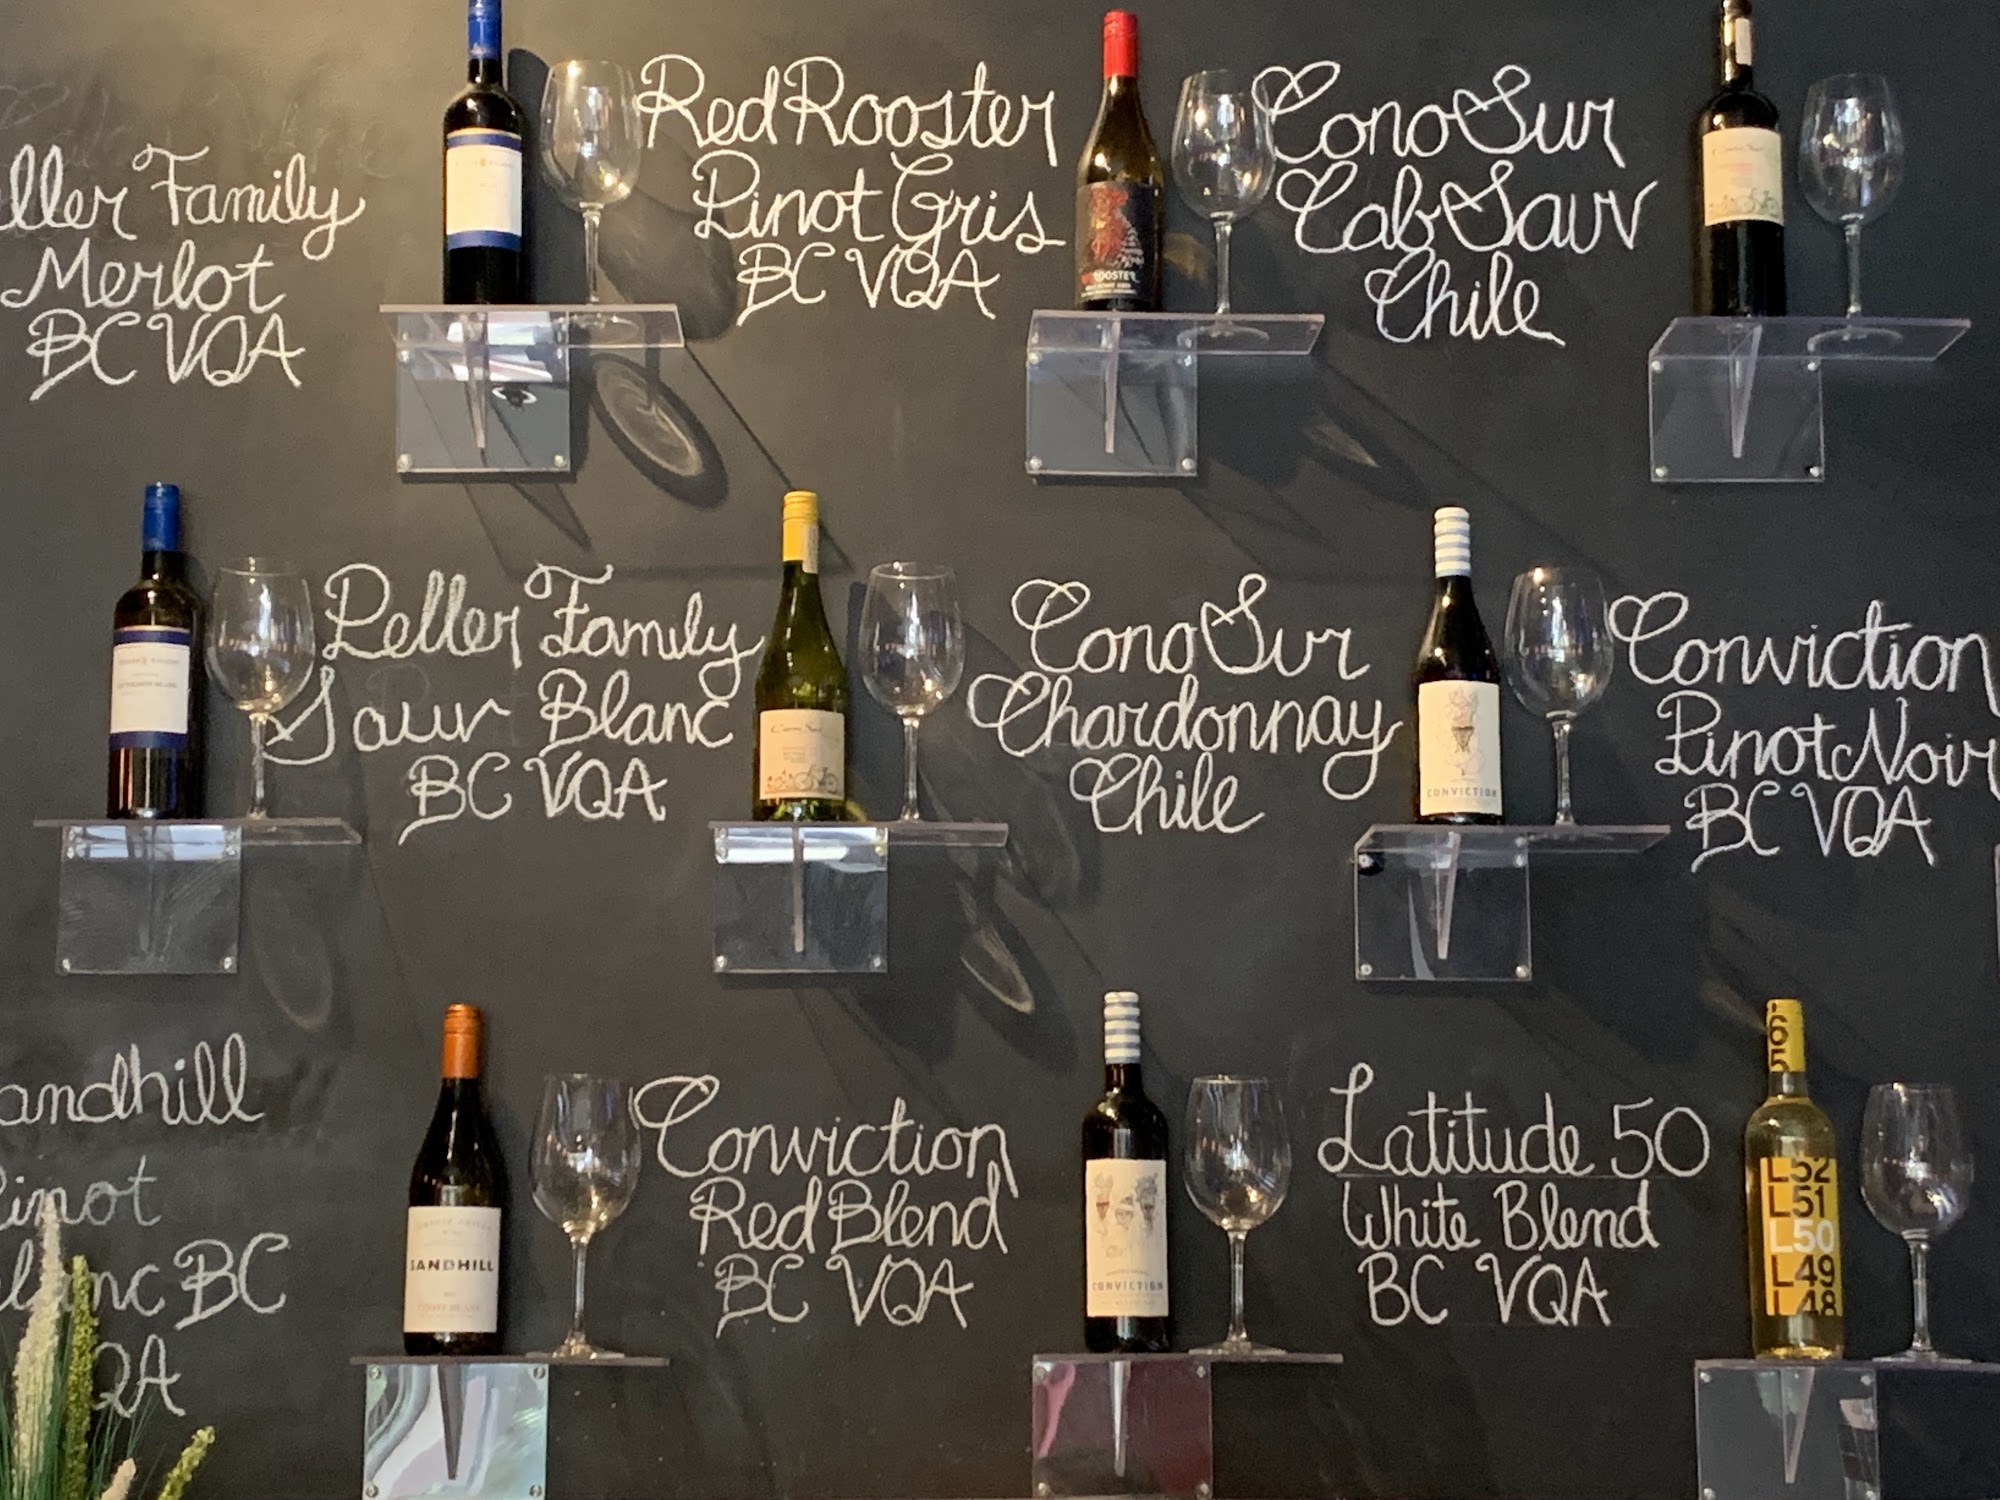 eller Family
Merlot
BC VQA
Red Rooster
Pinot Gris
BC VQA
ROOSTER
Cono Sur
Cab Sauv
Chile
Peller Family
Sauv Blanc
BC VQA
Cono Sur
Cono Sur
Chardonnay
Chile
CONVICTION
Conviction
Pinot Noir
BC VQA
andhill
Pinot
Blanc BC
QA
SANDHILL
Conviction
Red Blend
BC VQA
CONVICTION
Latitude 50
White Blend
BC VQA
L52
L51
L50
L49
L48